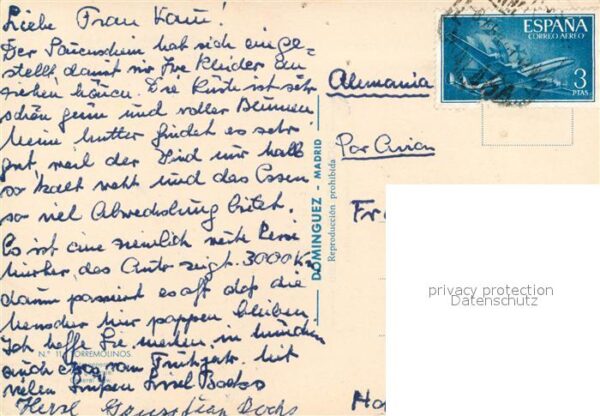 Liebe Frau Kann!
Der Sonnenschein hat sich einge=
stellt, damit wir Ihre Kleider
können. Die Küste ist sehr
schön grün und voller Blumen
Meine Mutter findet es sehr
gut, weil der Wind nur halb
so kalt weht und das Essen
so viel Abwechslung bietet.
Es ist eine ziemlich weite Reise
hierher, das Auto zeigt 3000 Km
dann passiert es oft daß die
Menschen hier bleiben.
Ich hoffe Sie merken in München
auch etwas vom Frühjahr. Mit
vielen Grüßen
Herzl.
N.º 11 TORREMOLINOS
DOMINGUEZ - MADRID
Reproducción prohibida
ESPAÑA
CORREO AEREO
3
PTAS
Alemania
Por Avion
Fr
privacy protection
Datenschutz
Ha